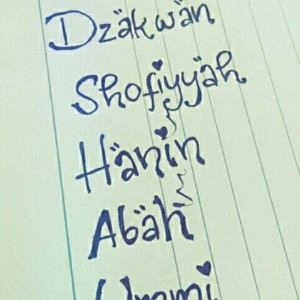 Dzäkwän
Shofiyyäh
Hänin
Abäh
Ummi